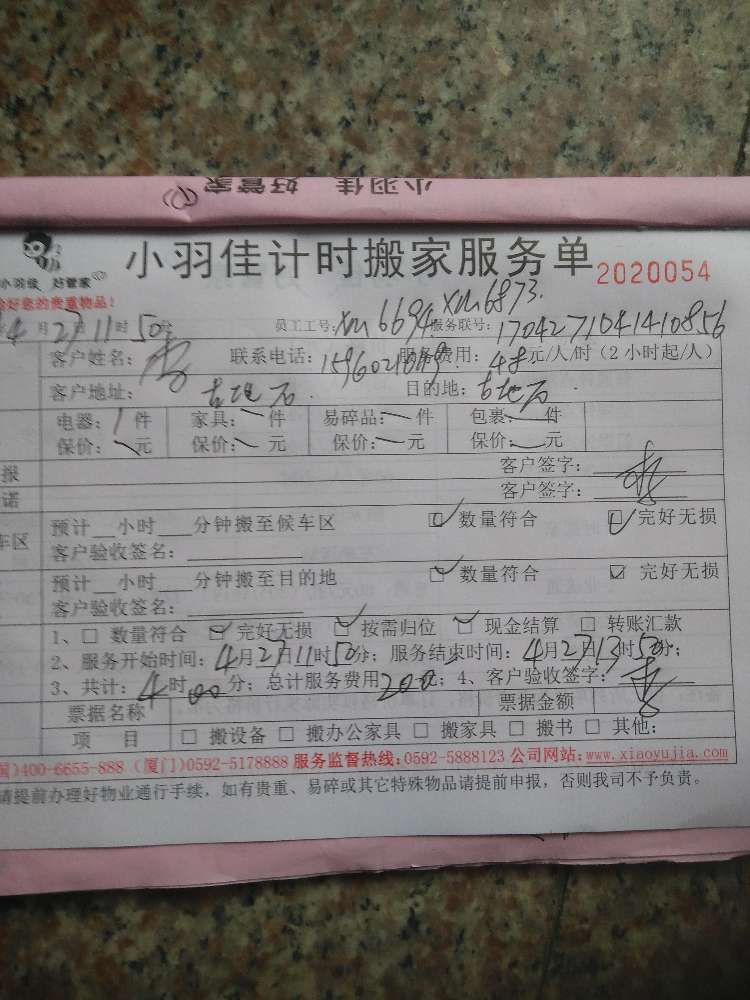 小羽佳 好管家
小羽佳计时搬家服务单 2020054
小羽佳 好管家
好您的贵重物品!
4月27日11时50分 员工工号:xm6694 xm6873. 服务联号:1704271041410856
客户姓名: 联系电话: 服务费用:48元/人/时(2小时起/人)
客户地址:古地石. 目的地:古地石.
电器:1件 家具:一件 易碎品:一件 包裹:一件
保价:一元 保价:一元 保价:一元 保价:一元
报 客户签字:
诺 客户签字:
车区 预计__小时___分钟搬至候车区 ☑数量符合 ☑完好无损
客户验收签名:
预计__小时___分钟搬至目的地 ☑数量符合 ☑完好无损
客户验收签名:
1、□ 数量符合 ☑ 完好无损 ☑ 按需归位 ☑ 现金结算 □ 转账汇款
2、服务开始时间:4月27日11时50分;服务结束时间:4月27日13时50分;
3、共计:4时00分;总计服务费用200元;4、客户验收签字:
票据名称 票据金额
项 目 □ 搬设备 □ 搬办公家具 □ 搬家具 □ 搬书 □ 其他:
国)400-6655-888 (厦门)0592-5178888 服务监督热线:0592-5888123 公司网站:www.xiaoyujia.com
请提前办理好物业通行手续,如有贵重、易碎或其它特殊物品请提前申报,否则我司不予负责。